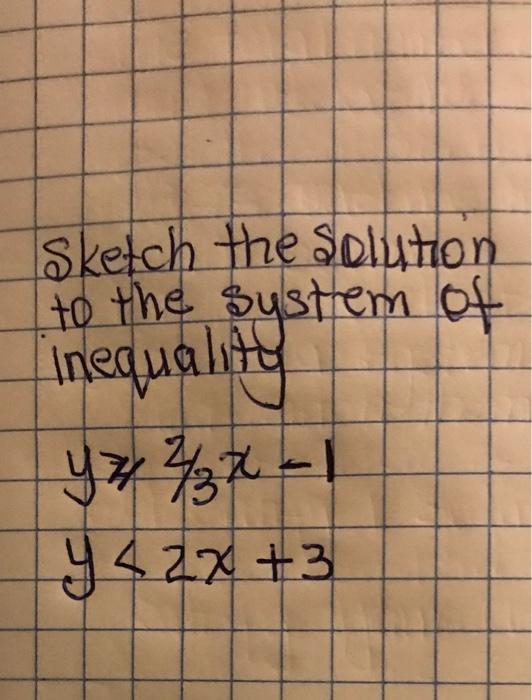 Sketch the Solution
to the system of
inequality
y ≥ 2/3x - 1
y < 2x + 3